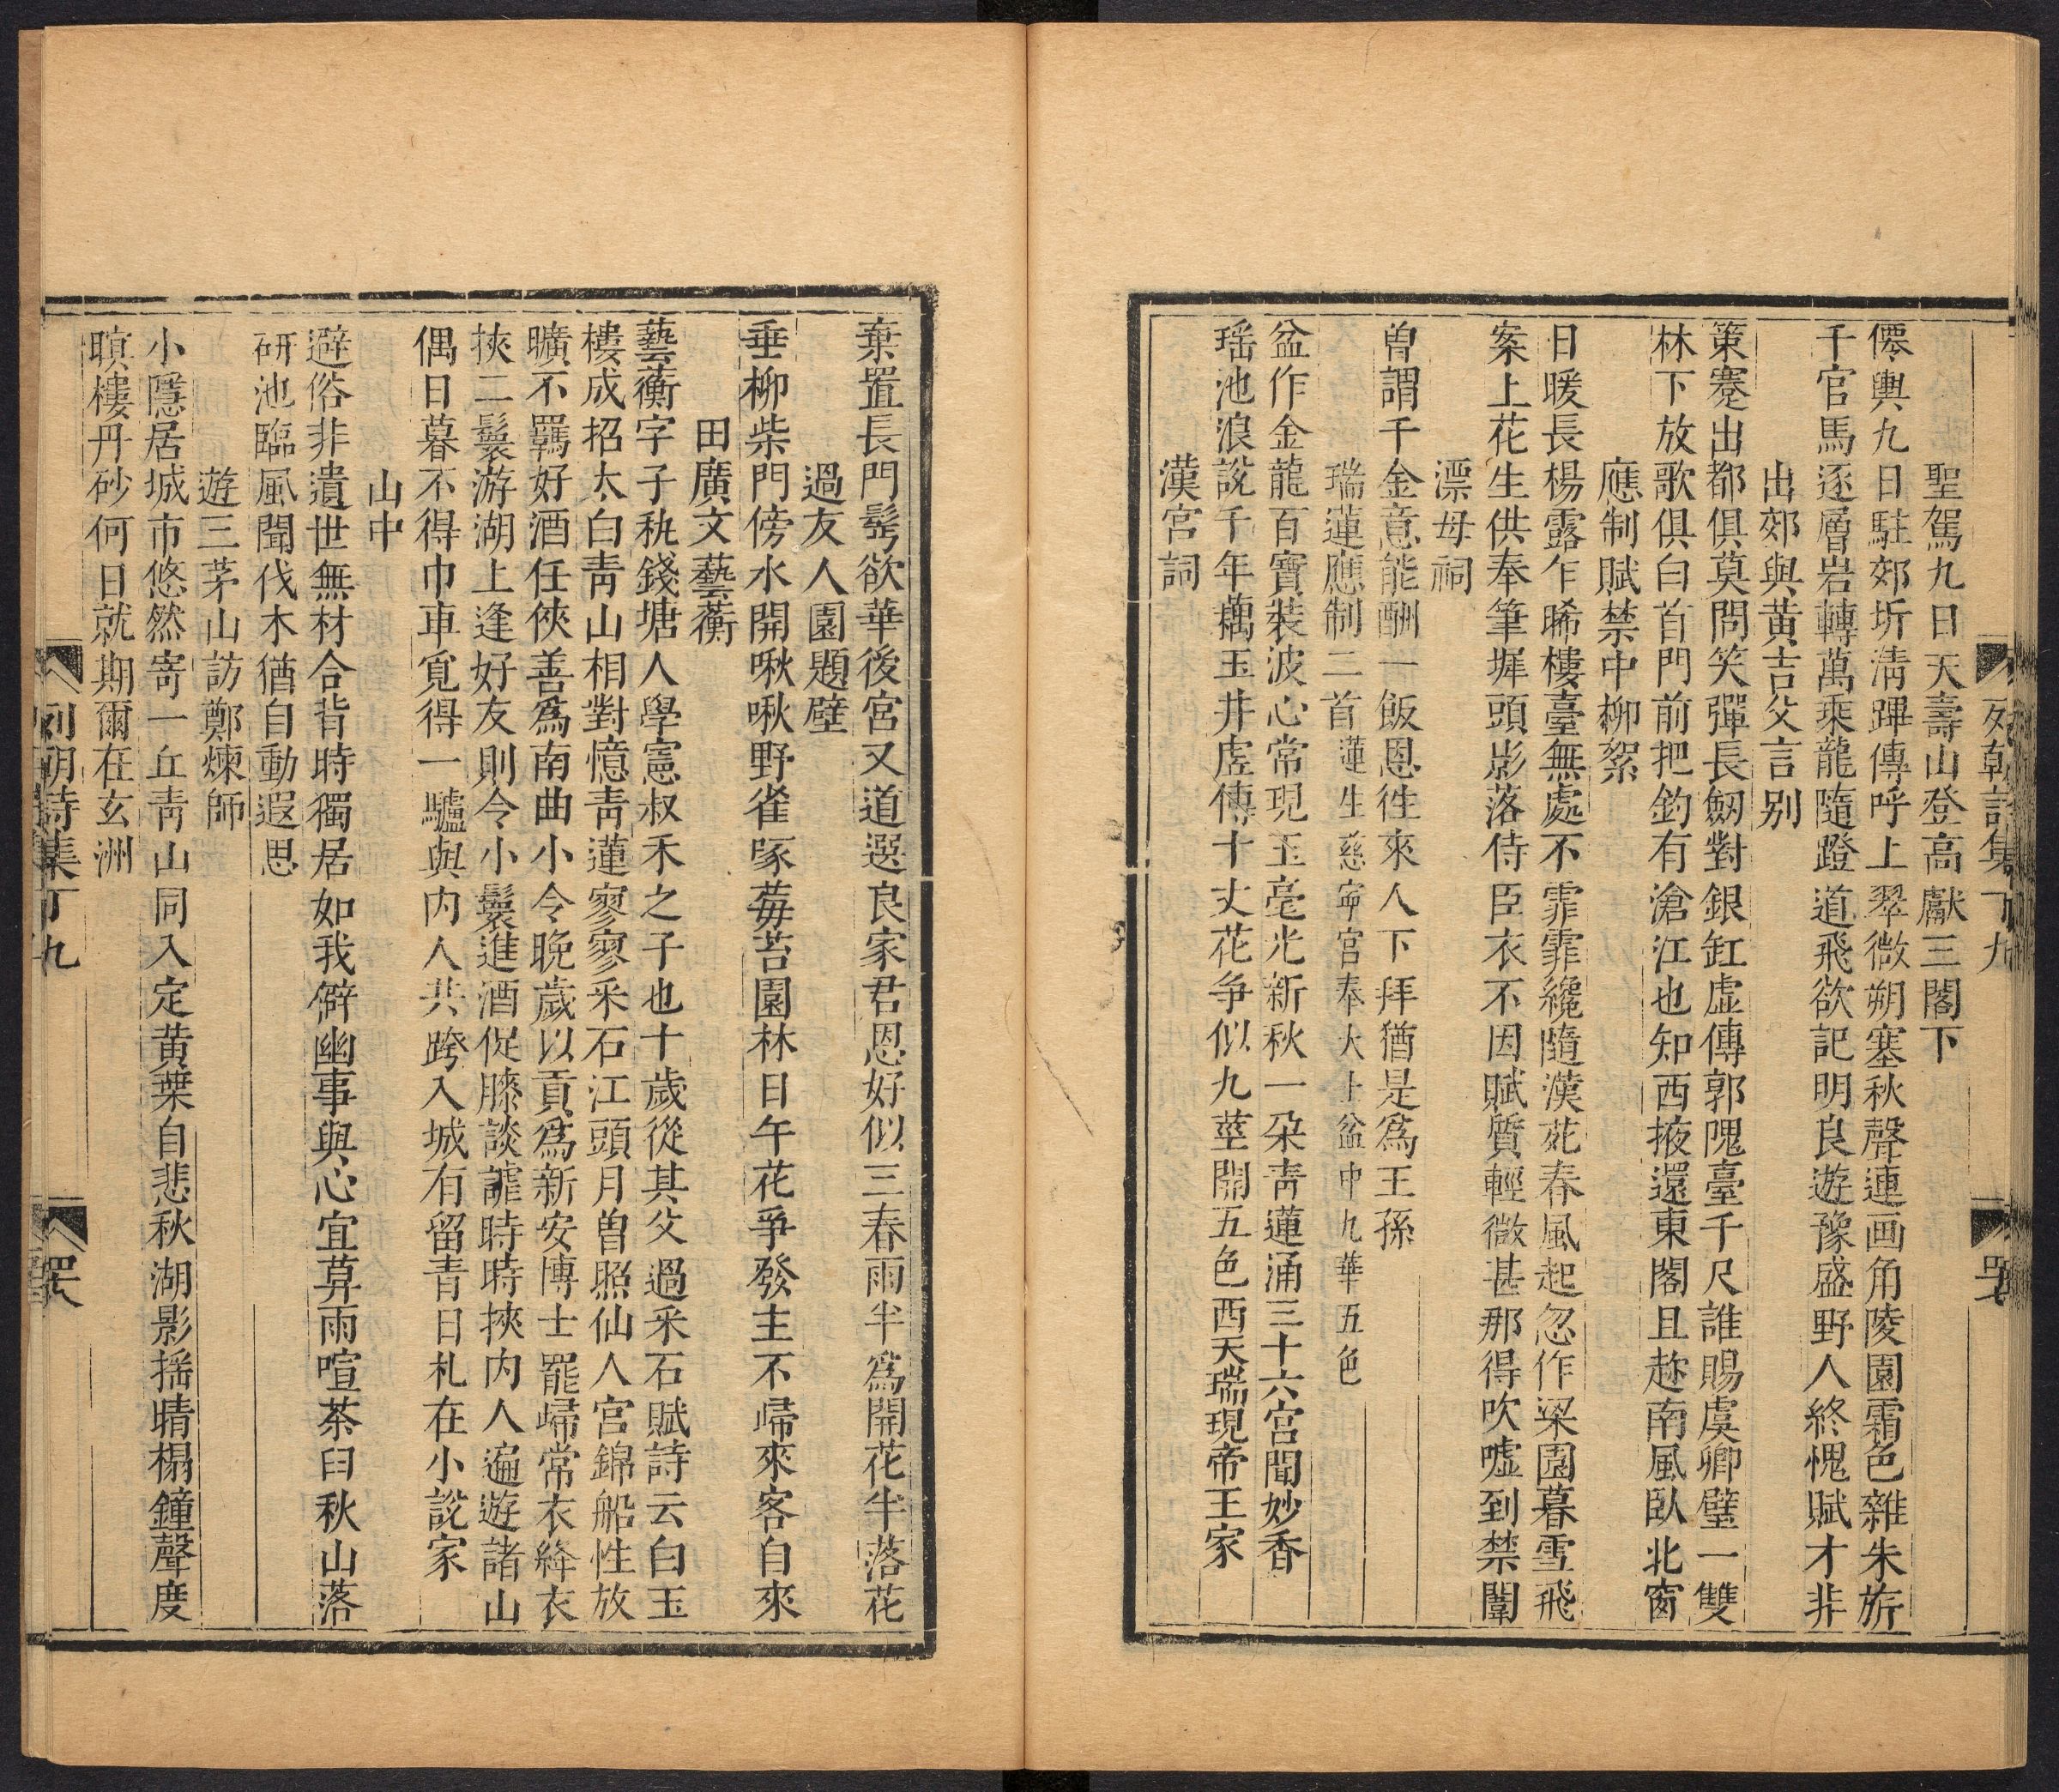 列朝詩集丁九
聖駕九日天壽山登高獻三閣下
僊輿九日駐郊圻淸蹕傳呼上翠微朔塞秋聲連画角陵園霜色雜朱旂
千官馬逐層岩轉萬乗龍隨蹬道飛欲記明良遊豫盛野人終愧賦才非
出郊與黃吉父言别
策蹇出都俱莫問笑彈長劒對銀缸虛傳郭隗臺千尺誰賜虞卿璧一雙
林下放歌俱白首門前把釣有滄江也知西掖還東閣且趂南風臥北窗
應制賦禁中柳絮
日暖長楊露乍晞樓臺無處不霏霏纔隨漢苑春風起忽作梁園暮雪飛
案上花生供奉筆墀頭影落侍臣衣不因賦質輕微甚那得吹噓到禁闈
漂母祠
曾謂千金意能酬一飯恩徃來人下拜猶是爲王孫
瑞蓮應制二首蓮生慈寜宮奉大士盆中九華五色
盆作金龍百寶裝波心常現玉毫光新秋一朶青蓮涌三十六宮聞妙香
瑶池浪說千年藕玉井虛傳十丈花争似九莖開五色西天瑞現帝王家
漢宮詞
棄置長門鬂欲華後宮又道選良家君恩好似三春雨半爲開花半落花
過友人園題壁
垂柳柴門傍水開啾啾野雀啄莓苔園林日午花爭發主不歸來客自來
田廣文藝蘅
藝蘅字子秇錢塘人學憲叔禾之子也十歲從其父過采石賦詩云白玉
樓成招太白青山相對憶青蓮寥寥采石江頭月曾照仙人宮錦船性放
曠不羈好酒任俠善爲南曲小令晚歲以貢爲新安博士罷歸常衣絳衣
挾二鬟游湖上逢好友則令小鬟進酒促膝談謔時時挾内人遍遊諸山
偶日暮不得巾車覓得一驢與内人共跨入城有留青日札在小說家
山中
避俗非遺世無材合背時獨居如我僻幽事與心宜草雨喧茶臼秋山落
研池臨風聞伐木猶自動遐思
遊三茅山訪鄭煉師
小隱居城市悠然寄一丘青山同入定黃葉自悲秋湖影揺晴榻鐘聲度
暝樓丹砂何日就期爾在玄洲
列朝詩集丁九